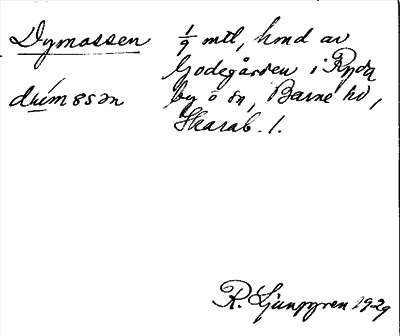 Dymossen 1/9 mtl, hmd av
Godegården i Ryda
by o sn, Barne hd,
Skarab. l.
R. Ljunggren 1929